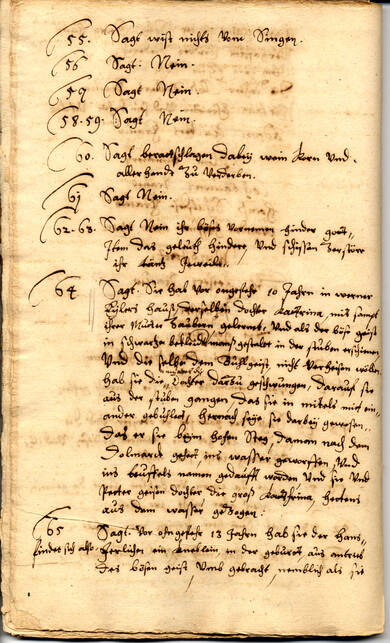 55. Sagt wist nichts vom Singen.
56 Sagt. Nein.
57 Sagt Nein.
58. 59. Sagt Nein.
60. Sagt beratschlagen dabeÿ wein Korn Und
allerhandt Zu Verderben.
61 Sagt Nein.
62. 63. Sagt Nein ihr böses Vornemen hinder gott
Item das geleüth hindere, Und schissen Zerstöre
ihr täntz
64 Sagt. Sie hab vor ongefehr 10 Jahren in werner
hauß, derselben dochter Kathrina, mit sampt
ihrer Mutter Zaubern gelernet, Und als der böse geist
in schwartz bekleidt manß gestalt in der stuben erschienen
Und die selbe dem Buhlgeist nicht Verheisen wöllen
hab sie die Dochter darbu geschwungen, darauf sie
aus der stuben gangen das sie in mitels mit ein
ander gebuhlet, hernach seÿe sie darbeÿ gewesen,
das er sie beim hohen Steg, daman nach dem
gehet, ins wasser geworffen, Und
ins teuffels namen gedaufft worden Und sie Und
Peter dochter die groß Kathrina,
aus dem wasser gezogen:
65 Sagt. Vor ohngefehr 13 Jahren hab sie der Hans
findet sich also. ein Kneblein, in der geburt aus antrieb
des bösen geist, Umb gebracht, nemblich als sie